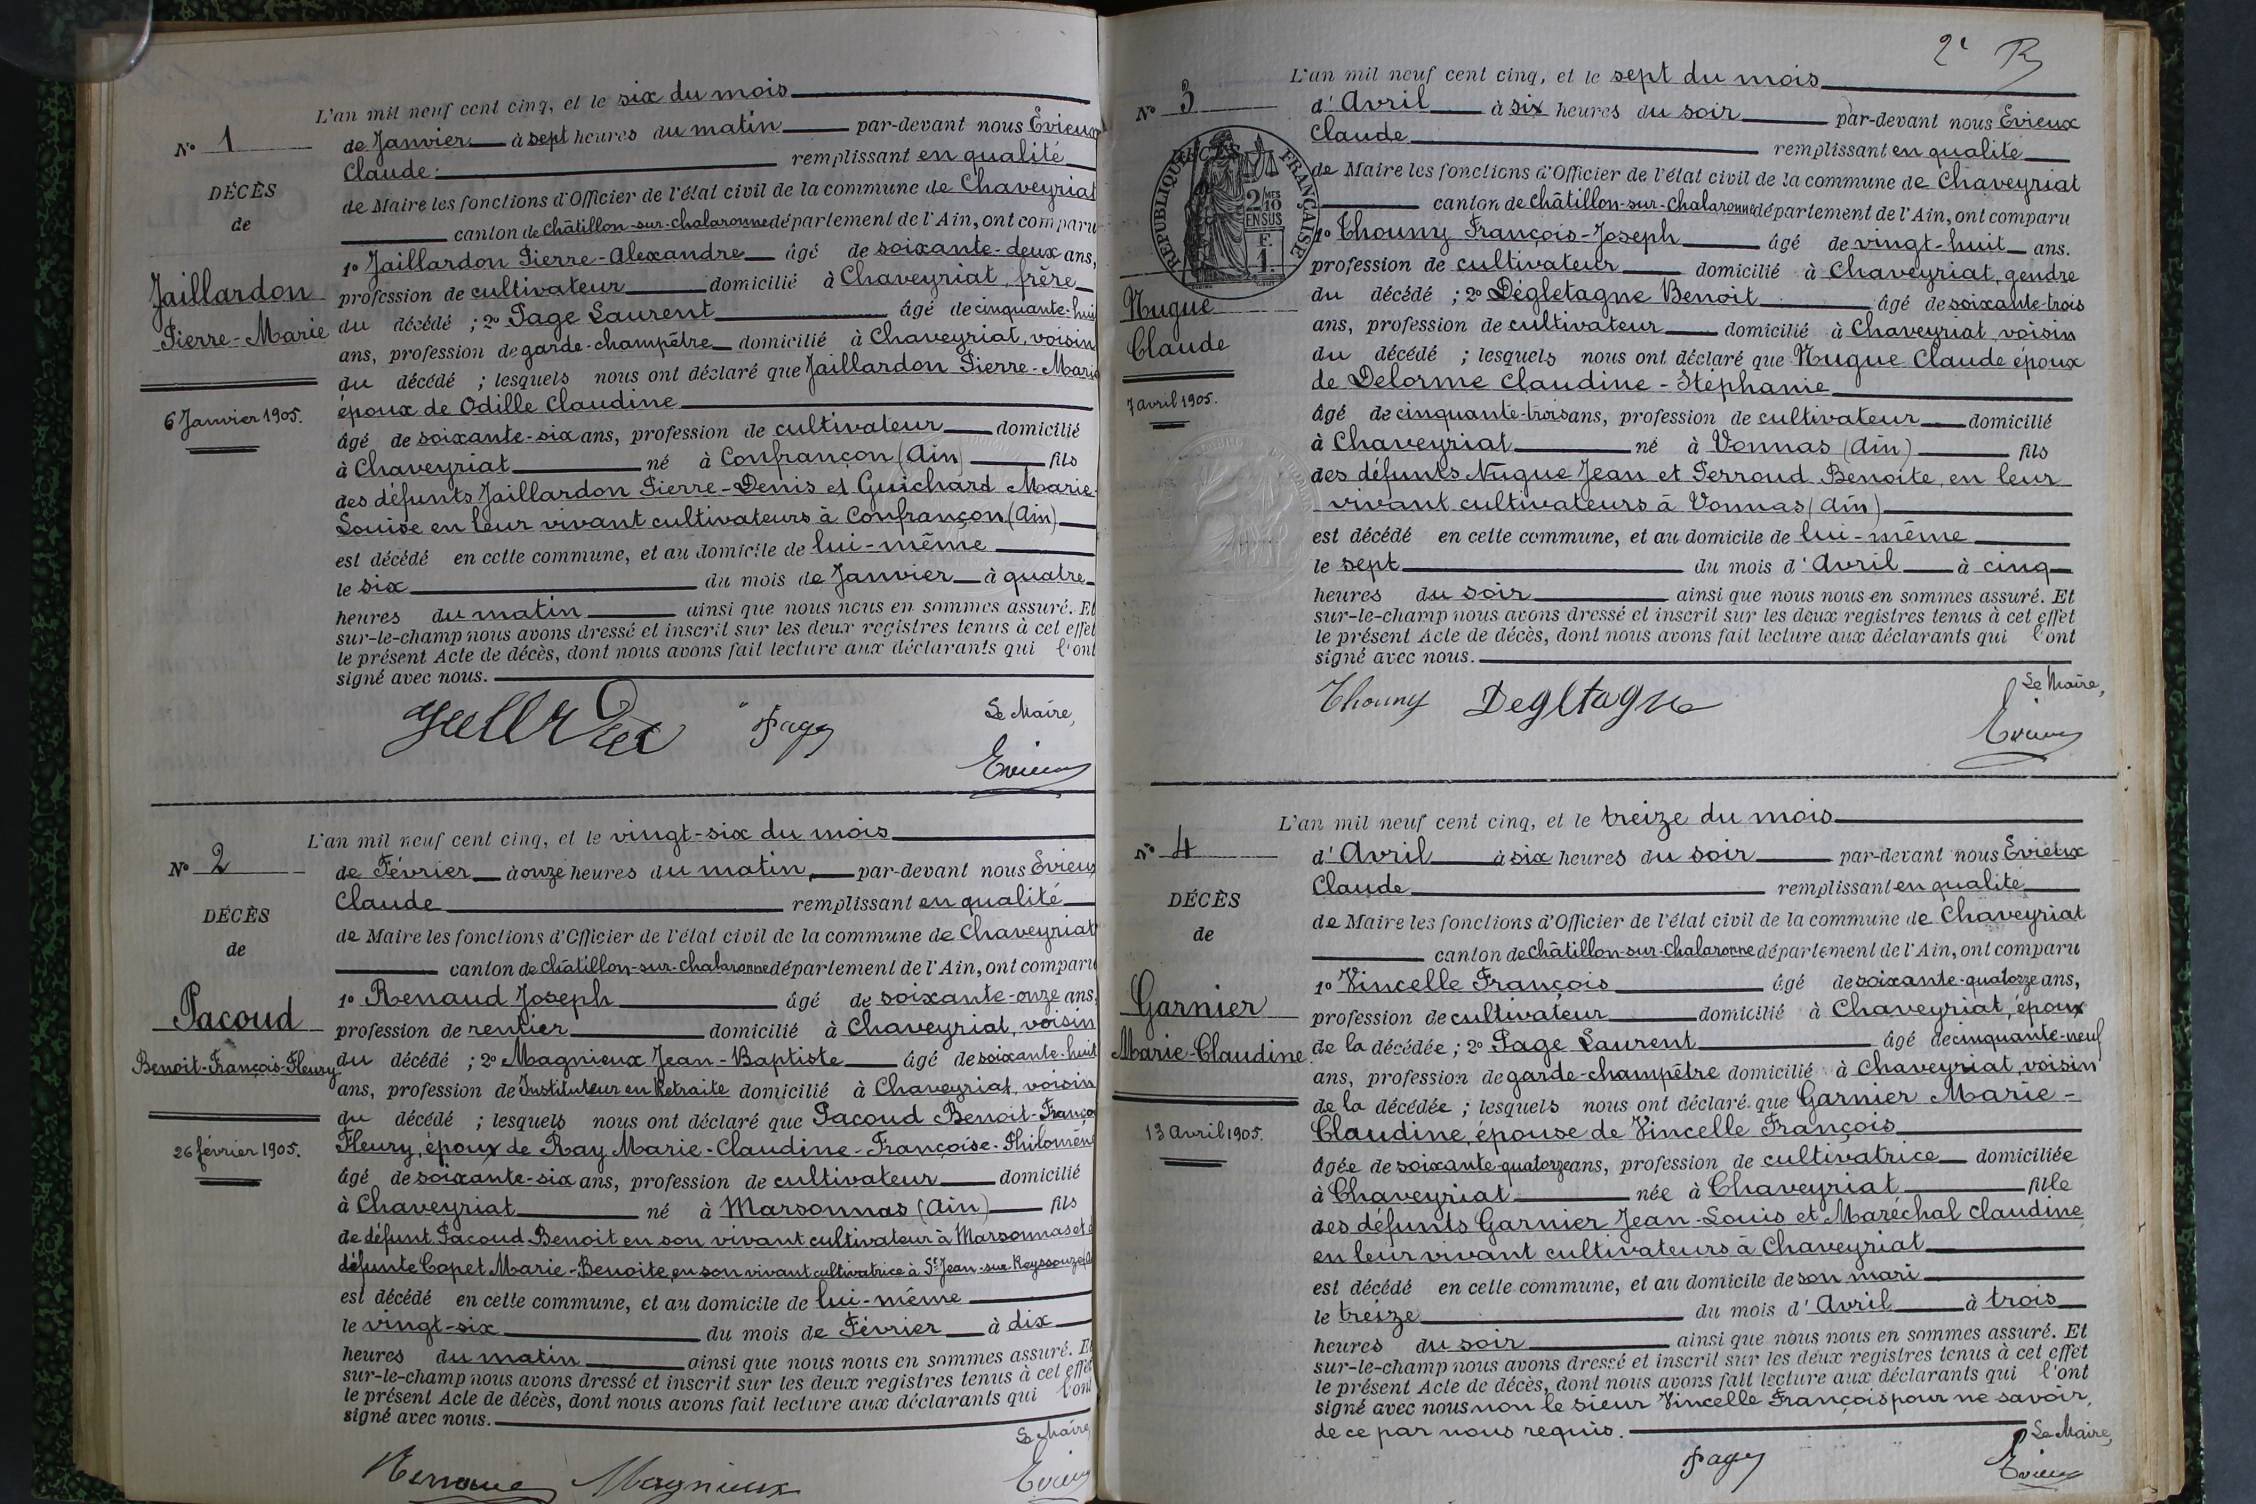 L'an mil neuf cent cinq, et le six du mois
N° 1
de Janvier à sept heures du matin par-devant nous Evieux
Claude remplissant en qualité
DÉCÈS
de Maire les fonctions d'Officier de l'état civil de la commune de Chaveyriat
de
canton de Châtillon-sur-Chalaronne département de l'Ain, ont comparu
1° Jaillardon Pierre-Alexandre âgé de soixante-deux ans,
Jaillardon
profession de cultivateur domicilié à Chaveyriat, frère
Pierre-Marie
du décédé ; 2° Page Laurent âgé de cinquante-huit
ans, profession de garde-champêtre domicilié à Chaveyriat, voisin
du décédé ; lesquels nous ont déclaré que Jaillardon Pierre-Marie
6 Janvier 1905.
époux de Odille Claudine
âgé de soixante-six ans, profession de cultivateur domicilié
à Chaveyriat né à Confrançon (Ain) fils
des défunts Jaillardon Pierre-Denis et Guichard Marie-
Louise en leur vivant cultivateurs à Confrançon (Ain)
est décédé en cette commune, et au domicile de lui-même
le six du mois de Janvier à quatre
heures du matin ainsi que nous nous en sommes assuré. Et
sur-le-champ nous avons dressé et inscrit sur les deux registres tenus à cet effet
le présent Acte de décès, dont nous avons fait lecture aux déclarants qui l'ont
signé avec nous.
Le Maire,
Page
Evieux
L'an mil neuf cent cinq, et le vingt-six du mois
N° 2
de Février à onze heures du matin, par-devant nous Evieux
Claude remplissant en qualité
DÉCÈS
de Maire les fonctions d'Officier de l'état civil de la commune de Chaveyriat
de
canton de Châtillon-sur-Chalaronne département de l'Ain, ont comparu
1° Renaud Joseph âgé de soixante-onze ans,
Pacoud
profession de rentier domicilié à Chaveyriat, voisin
Benoit-François-Fleury
du décédé ; 2° Magnieux Jean-Baptiste âgé de soixante-huit
ans, profession de Instituteur en Retraite domicilié à Chaveyriat, voisin
du décédé ; lesquels nous ont déclaré que Pacoud Benoit-François
26 février 1905.
Fleury, époux de Ray Marie-Claudine-Françoise-Philomène
âgé de soixante-six ans, profession de cultivateur domicilié
à Chaveyriat né à Marsonnas (Ain) fils
de défunt Pacoud Benoit en son vivant cultivateur à Marsonnas et de
défunte Copet Marie-Benoite, en son vivant cultivatrice à St Jean-sur-Reyssouze
est décédé en cette commune, et au domicile de lui-même
le vingt-six du mois de Février à dix
heures du matin ainsi que nous nous en sommes assuré. Et
sur-le-champ nous avons dressé et inscrit sur les deux registres tenus à cet effet
le présent Acte de décès, dont nous avons fait lecture aux déclarants qui l'ont
signé avec nous.
Le Maire,
Renaud Magnieux Evieux
2e
L'an mil neuf cent cinq, et le sept du mois
N° 3
d'Avril à six heures du soir par-devant nous Evieux
Claude remplissant en qualité
DÉCÈS
RÉPUBLIQUE FRANÇAISE
2/10 MES
EN SUS
F.
1.
de Maire les fonctions d'Officier de l'état civil de la commune de Chaveyriat
canton de Châtillon-sur-Chalaronne département de l'Ain, ont comparu
1° Thouny François-Joseph âgé de vingt-huit ans.
profession de cultivateur domicilié à Chaveyriat, gendre
Nugue
du décédé ; 2° Dégletagne Benoit âgé de soixante-trois
ans, profession de cultivateur domicilié à Chaveyriat, voisin
Claude
du décédé ; lesquels nous ont déclaré que Nugue Claude époux
de Delorme Claudine-Stéphanie
7 avril 1905.
âgé de cinquante-trois ans, profession de cultivateur domicilié
à Chaveyriat né à Vonnas (Ain) fils
des défunts Nugue Jean et Perroud Benoite, en leur
vivant cultivateurs à Vonnas (Ain)
est décédé en cette commune, et au domicile de lui-même
le sept du mois d'Avril à cinq
heures du soir ainsi que nous nous en sommes assuré. Et
sur-le-champ nous avons dressé et inscrit sur les deux registres tenus à cet effet
le présent Acte de décès, dont nous avons fait lecture aux déclarants qui l'ont
signé avec nous.
Le Maire,
Thouny Degltagne
Evieux
L'an mil neuf cent cinq, et le treize du mois
N° 4
d'Avril à six heures du soir par-devant nous Evieux
Claude remplissant en qualité
DÉCÈS
de Maire les fonctions d'Officier de l'état civil de la commune de Chaveyriat
de
canton de Châtillon-sur-Chalaronne département de l'Ain, ont comparu
1° Vincelle François âgé de soixante-quatorze ans,
Garnier
profession de cultivateur domicilié à Chaveyriat, époux
Marie-Claudine
de la décédée ; 2° Page Laurent âgé de cinquante-neuf
ans, profession de garde-champêtre domicilié à Chaveyriat, voisin
de la décédée ; lesquels nous ont déclaré que Garnier Marie-
13 avril 1905.
Claudine, épouse de Vincelle François
âgée de soixante-quatorze ans, profession de cultivatrice domiciliée
à Chaveyriat née à Chaveyriat fille
des défunts Garnier Jean-Louis et Maréchal Claudine
en leur vivant cultivateurs à Chaveyriat
est décédé en cette commune, et au domicile de son mari
le treize du mois d'Avril à trois
heures du soir ainsi que nous nous en sommes assuré. Et
sur-le-champ nous avons dressé et inscrit sur les deux registres tenus à cet effet
le présent Acte de décès, dont nous avons fait lecture aux déclarants qui l'ont
signé avec nous non le sieur Vincelle François pour ne savoir,
de ce par nous requis.
Le Maire,
Page
Evieux